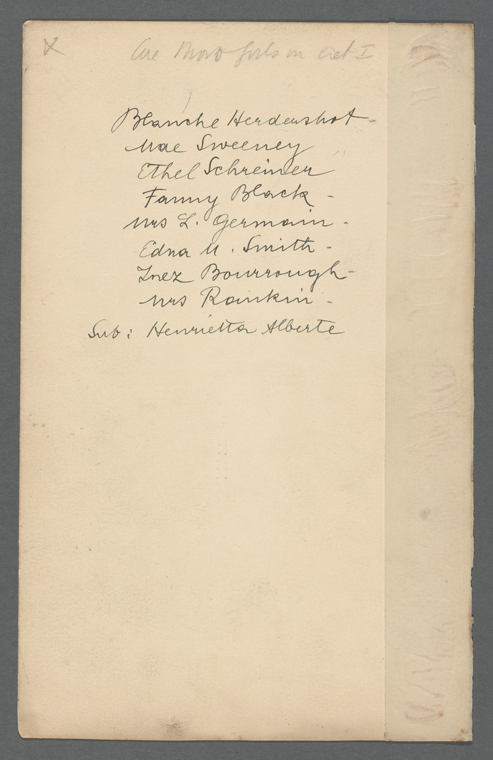 X
Blanche Herdenshot -
Mae Sweeney "
Ethel Schreiner
Fanny Black -
Mrs L. Germain -
Edna M. Smith -
Inez Bourrough -
Mrs Rankin -
Sub: Henrietta Alberte